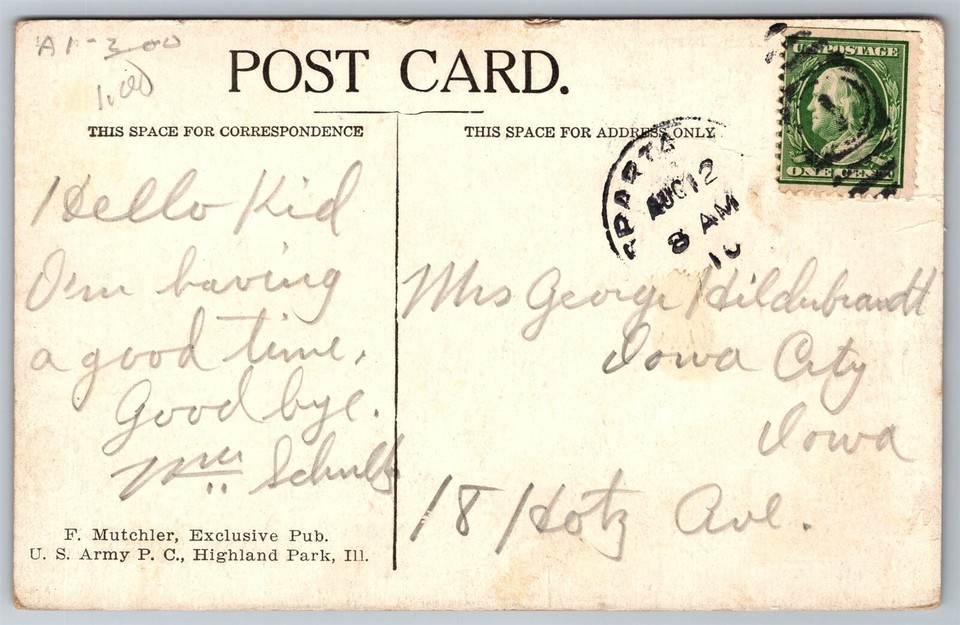 A1-300
1.00
POST CARD.
THIS SPACE FOR CORRESPONDENCE
THIS SPACE FOR ADDRESS ONLY
U.S. POSTAGE
ONE CENT
SPARTA
AUG 12
8 AM
10
Hello Kid
I'm having
a good time.
Good bye.
Mrs Schultz
Mrs George Hildebrandt
Iowa City
Iowa
18 Hotz Ave.
F. Mutchler, Exclusive Pub.
U. S. Army P. C., Highland Park, Ill.